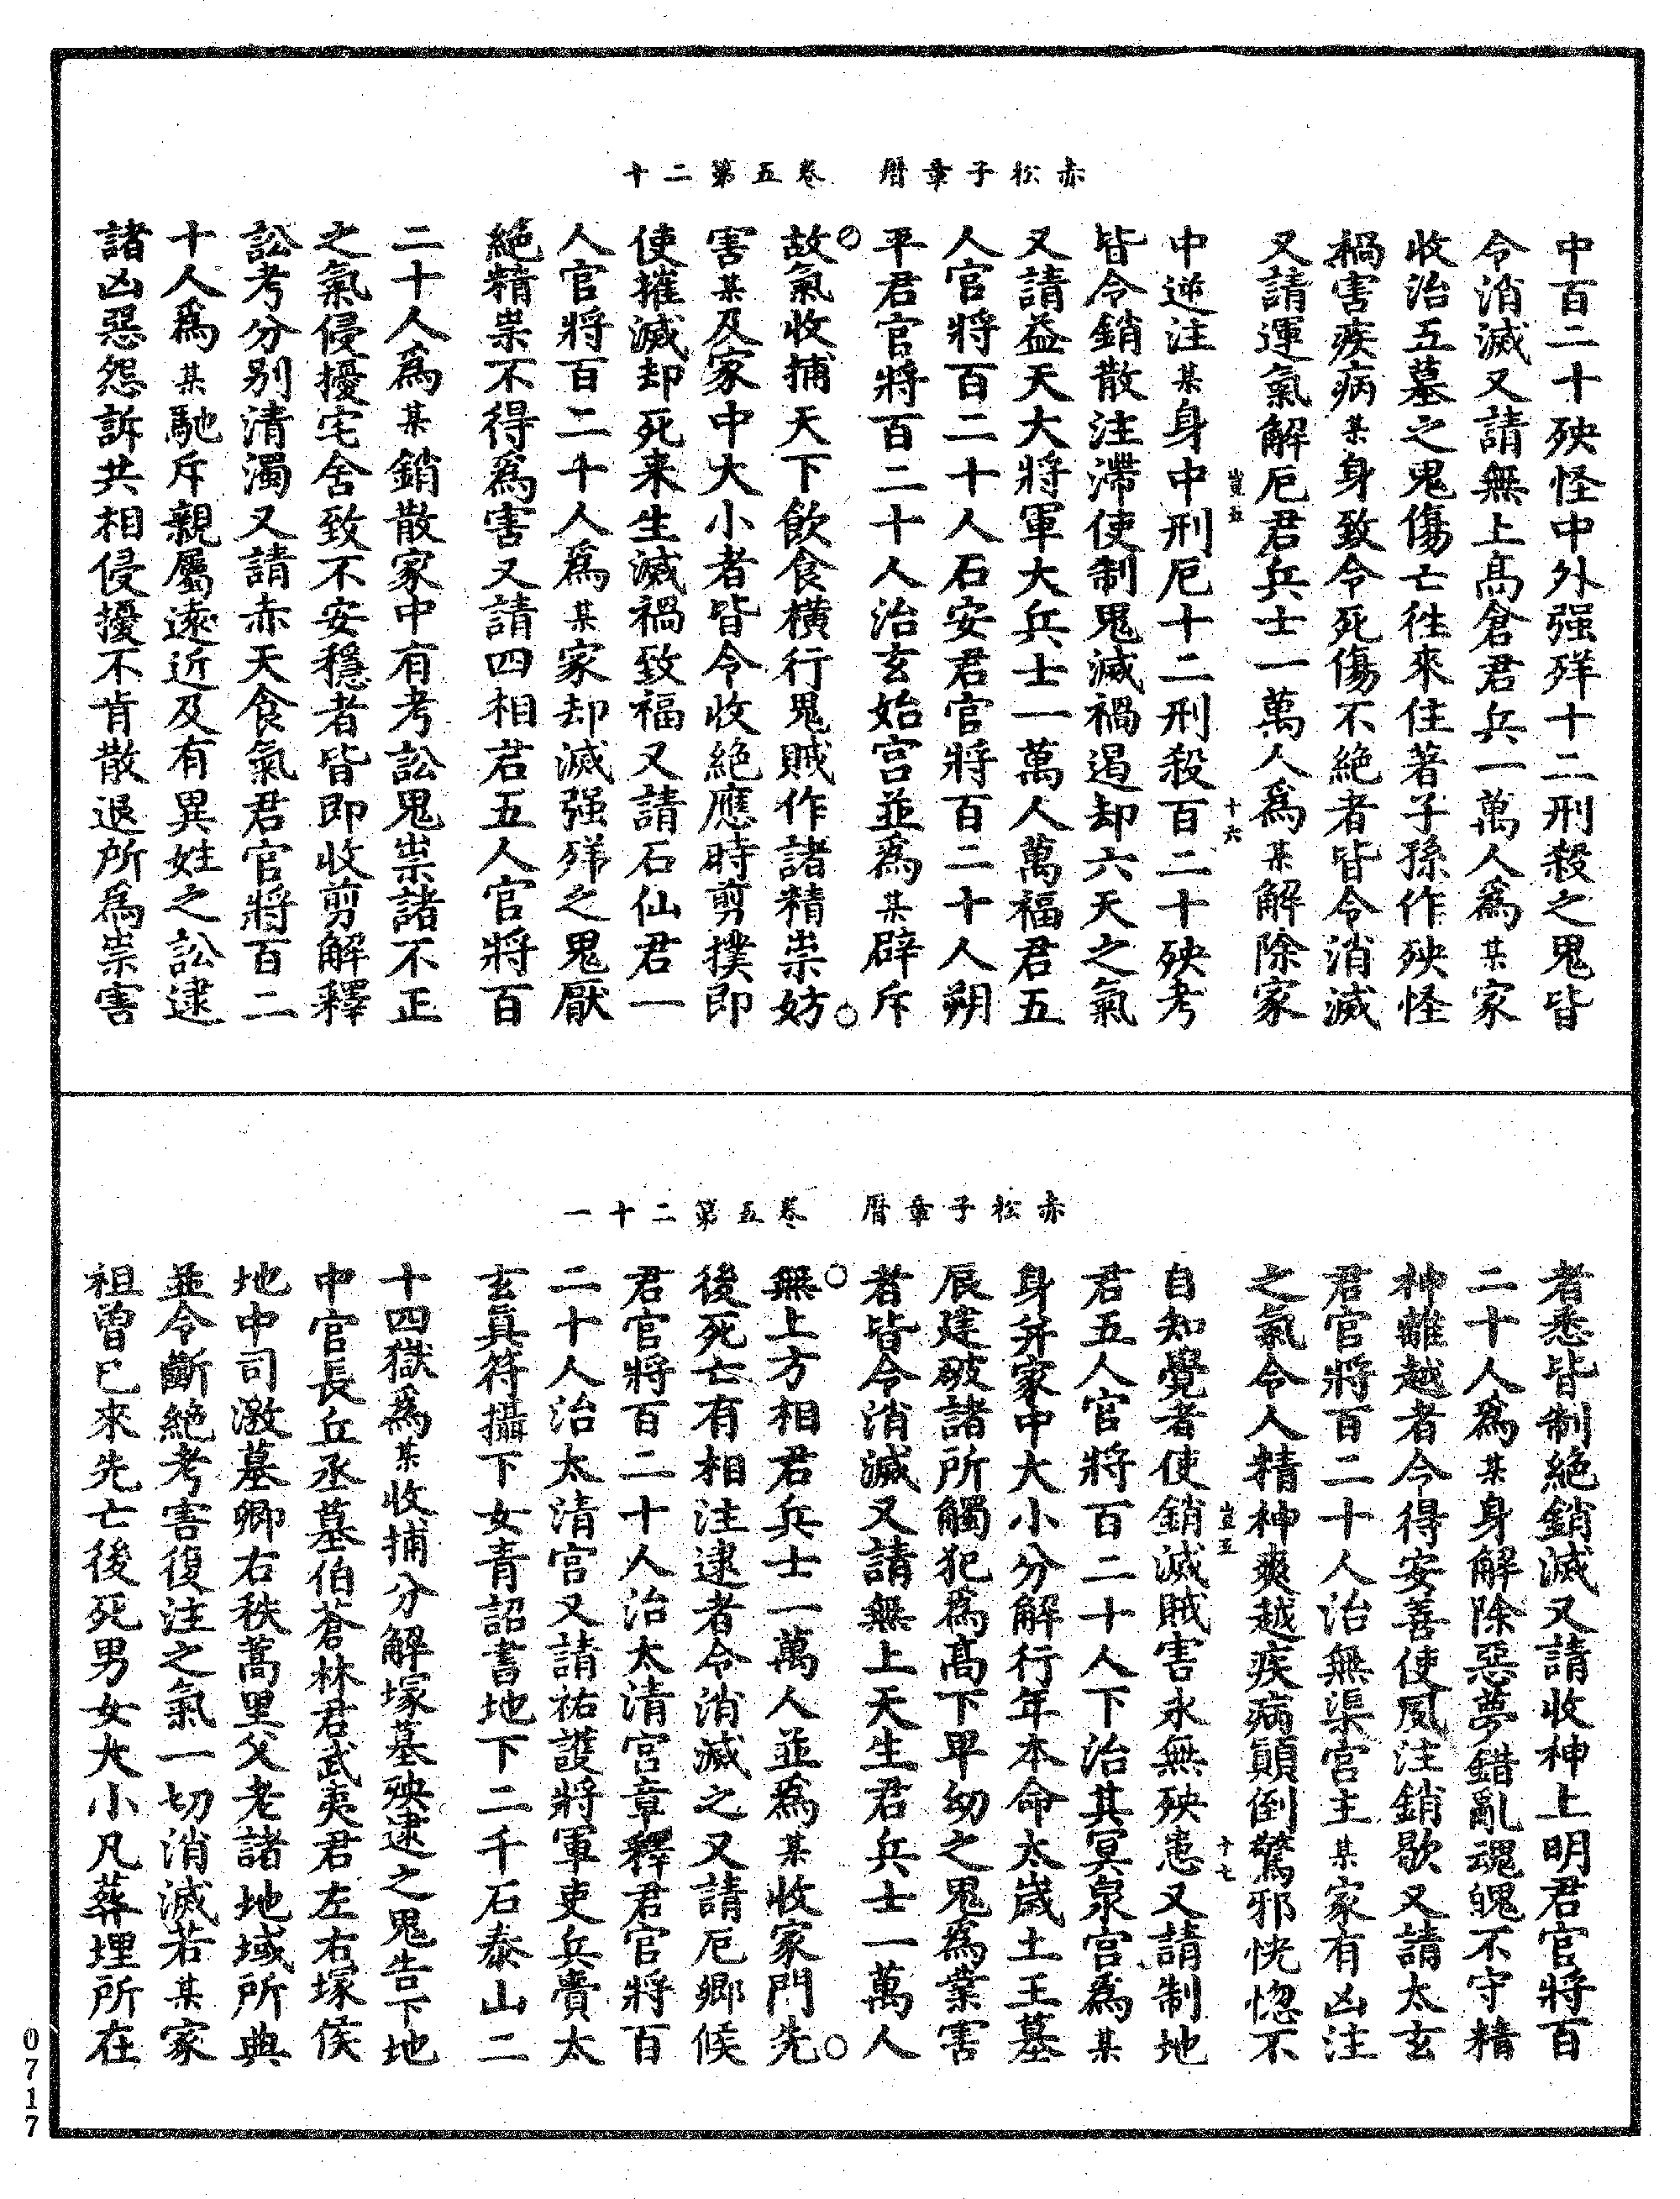 赤松子章曆　卷五第二十
中百二十殃怪中外强殃十二刑殺之鬼皆
令消滅又請無上高倉君兵一萬人爲某家
收治五墓之鬼傷亡徃來住著子孫作殃怪
禍害疾病某身致令死傷不絕者皆令消滅
又請運氣解厄君兵士一萬人爲某解除家
豈五　十六
中逆注某身中刑厄十二刑殺百二十殃考
皆令銷散注滯使制鬼滅禍遏却六天之氣
又請益天大將軍大兵士一萬人萬福君五
人官將百二十人石安君官將百二十人朔
平君官將百二十人治玄始宫並爲某辟斥
故氣收捕天下飲食橫行鬼賊作諸精祟妨
害某及家中大小者皆令收絕應時剪撲即
使摧滅却死来生滅禍致福又請石仙君一
人官將百二十人爲某家却滅强殃之鬼厭
絕精祟不得爲害又請四相君五人官將百
二十人爲某銷散家中有考訟鬼祟諸不正
之氣侵擾宅舍致不安穩者皆即收剪解釋
訟考分别清濁又請赤天食氣君官將百二
十人爲某馳斥親屬遠近及有異姓之訟逮
諸凶惡怨訴共相侵擾不肯散退所爲祟害
赤松子章曆　卷五第二十一
者悉皆制絕銷滅又請收神上明君官將百
二十人爲某身解除惡夢錯亂魂魄不守精
神離越者今得安善使風注銷歇又請太玄
君官將百二十人治無渠宫主某家有凶注
之氣令人精神爽越疾病顛倒驚邪恍惚不
豈五　十七
自知覺者使銷滅賊害永無殃患又請制地
君五人官將百二十人下治其冥泉宫爲某
身并家中大小分解行年本命太歲土王墓
辰建破諸所觸犯爲高下卑幼之鬼爲業害
者皆令消滅又請無上天生君兵士一萬人
無上方相君兵士一萬人並爲某收家門先
後死亡有相注逮者令消滅之又請厄鄉候
君官將百二十人治太清宫章釋君官將百
二十人治太清宫又請祐護將軍吏兵賷太
玄真符攝下女青詔書地下二千石泰山二
十四獄爲某收捕分解塚墓殃逮之鬼告下地
中官長丘丞墓伯蒼林君武夷君左右塚侯
地中司激墓卿右秩蒿里父老諸地域所典
並令斷絕考害復注之氣一切消滅若某家
祖曾已來先亡後死男女大小凡葬埋所在
0717